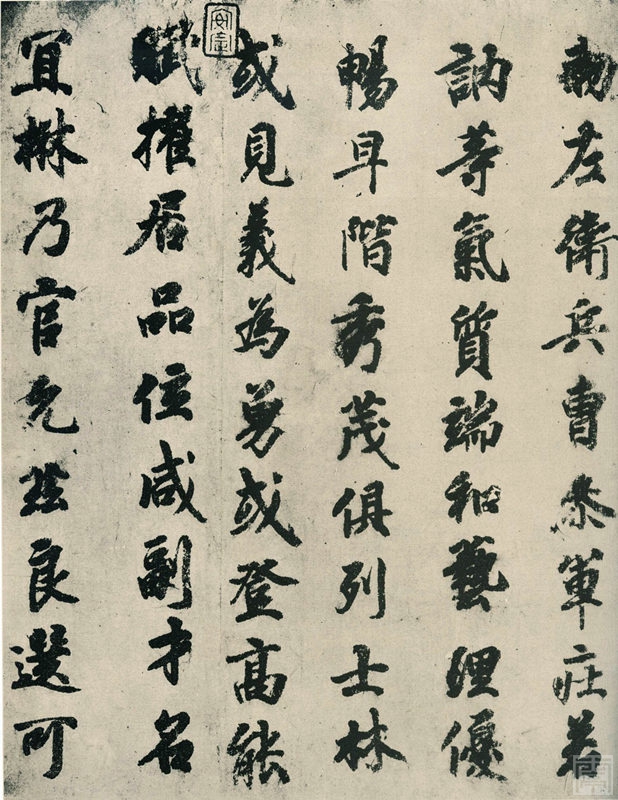 勑左衛兵曹叅軍莊若
訥等氣質端和藝理優
暢早階秀茂俱列士林
或見義為勇或登高能
賦擢居品位咸副才名
宜楙乃官允茲良選可